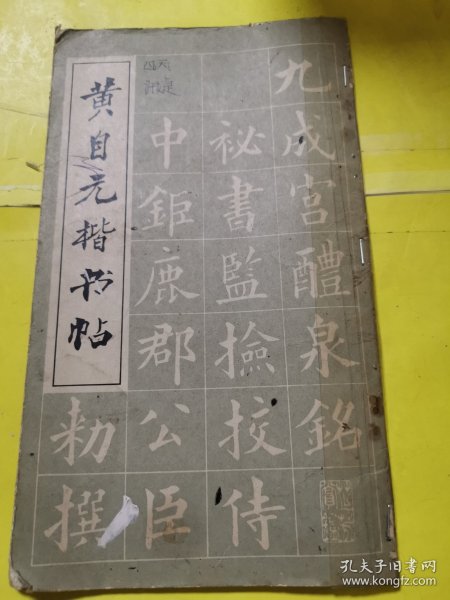 黄自元楷书帖
九成宫醴泉铭
祕書監撿挍侍
中鉅鹿郡公臣
勑撰
孔夫子旧书网
www.kongfz.com